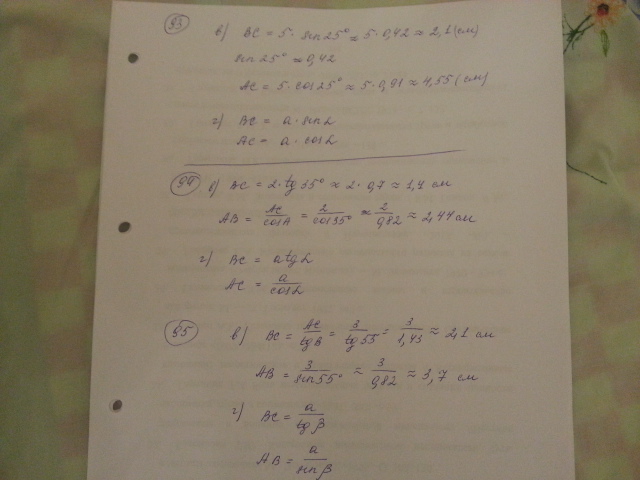 93
в) BC = 5 · sin 25° ≈ 5 · 0,42 ≈ 2,1 (см)
sin 25° ≈ 0,42
AC = 5 · cos 25° ≈ 5 · 0,91 ≈ 4,55 (см)
г) BC = a · sin α
AC = a · cos α
94 в) BC = 2 · tg 35° ≈ 2 · 0,7 ≈ 1,4 см
AB = AC/cos A = 2/cos 35° ≈ 2/0,82 ≈ 2,44 см
г) BC = a tg α
AC = a/cos α
95 в) BC = AC/tg B = 3/tg 55 = 3/1,43 ≈ 2,1 см
AB = 3/sin 55° ≈ 3/0,82 ≈ 3,7 см
г) BC = a/tg β
AB = a/sin β